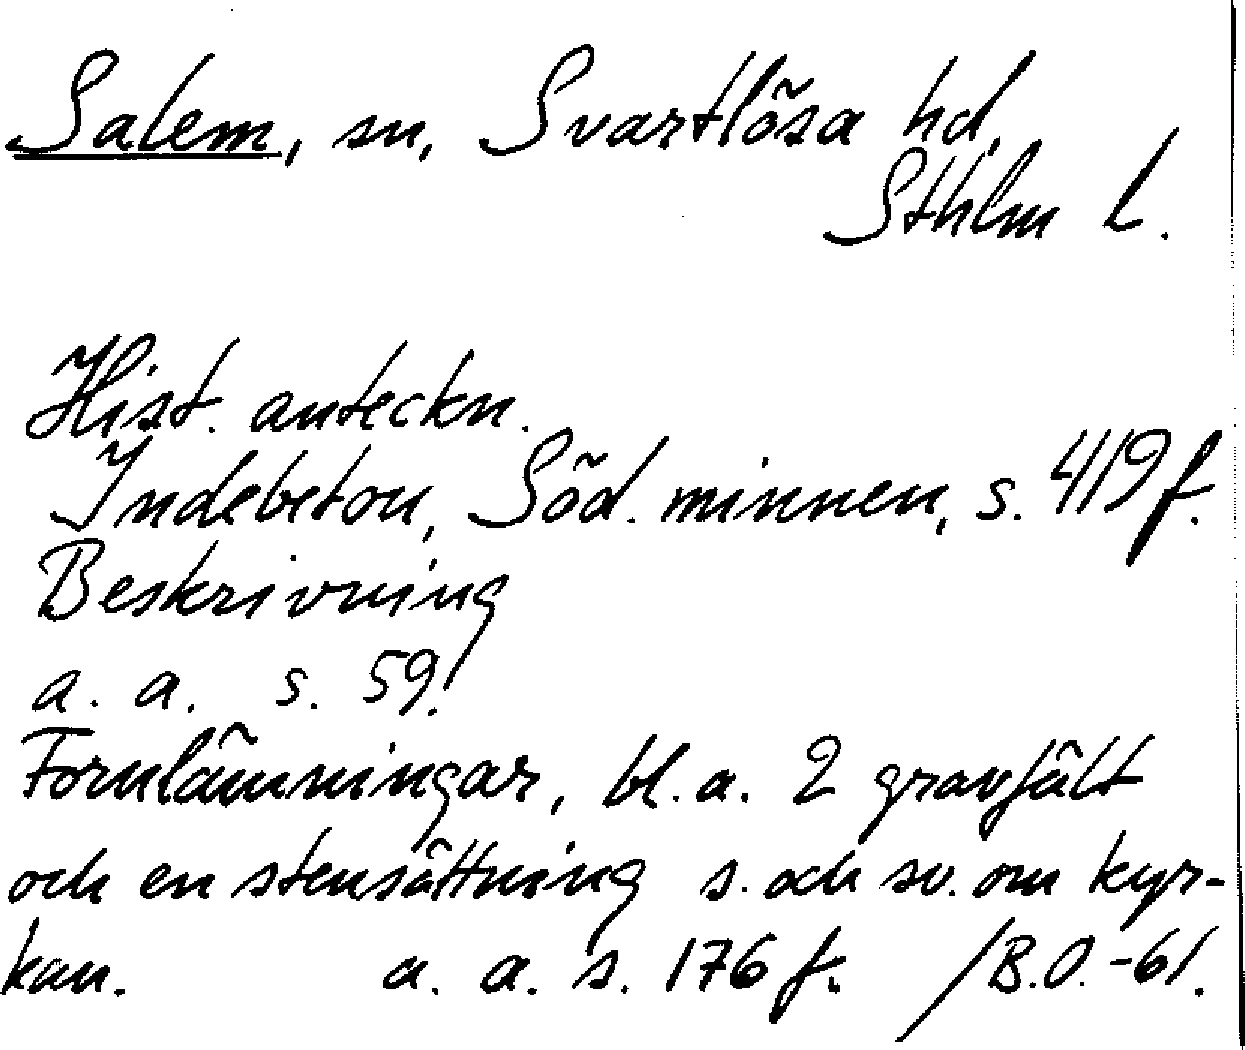 Salem, sn, Svartlösa hd,
Sthlm l.
Hist. anteckn.
Indebetou, Söd. minnen, s. 419 f.
Beskrivning
a. a. s. 59.
Fornlämningar, bl. a. 2 gravfält
och en stensättning s. och sv. om kyr-
kan. a. a. s. 176 f. /B.O.-61.